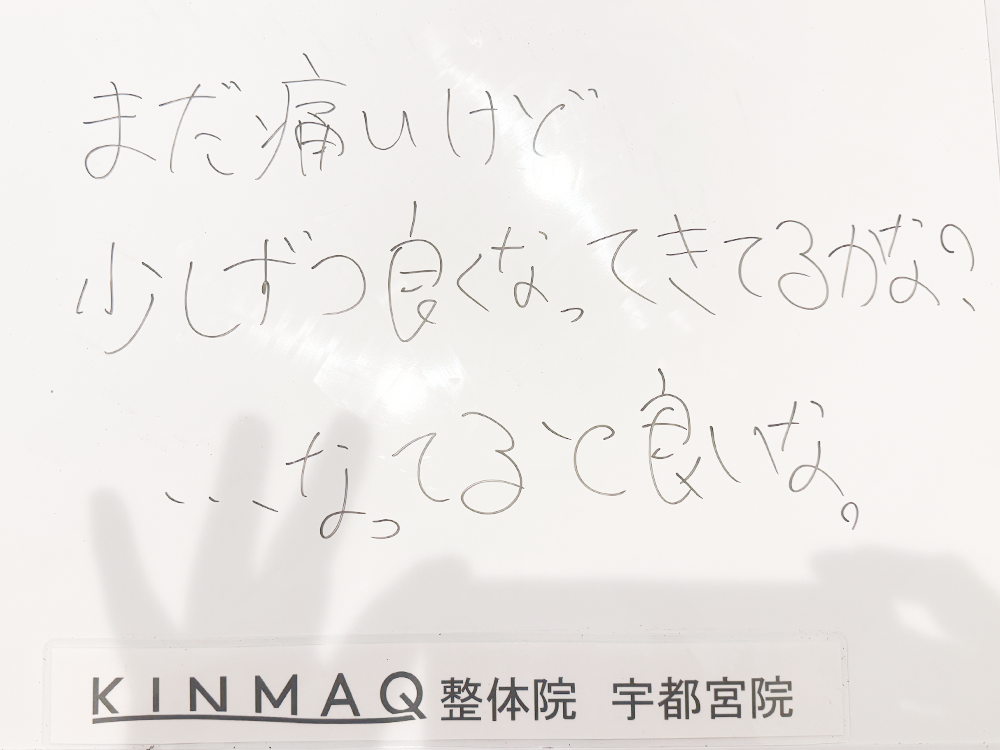 まだ痛いけど
少しずつ良くなってきてるかな?
...なってると良いな。
KINMAQ整体院 宇都宮院